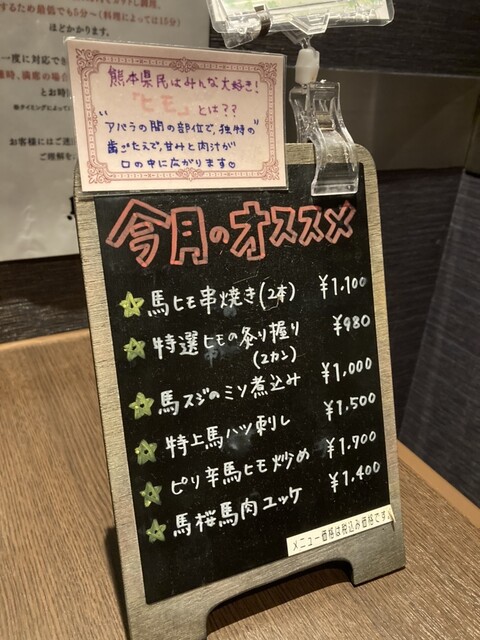 するため最低でも5分〜(料理によっては15分)
ほどかかります。
お客様にはご迷
熊本県民はみんな大好き!
"ヒモ"とは??
アバラの間の部位で、独特の
歯ごたえで、甘みと肉汁が
口の中に広がります
今月のオススメ
馬ヒモ串焼き(2本) ¥1,100
特選ヒモの炙り握り ¥980
(2カン)
馬スジのミソ煮込み ¥1,000
特上馬ハツ刺し ¥1,500
ピリ辛馬ヒモ炒め ¥1,700
馬桜馬肉ユッケ ¥1,400
メニュー価格は税込み価格です。